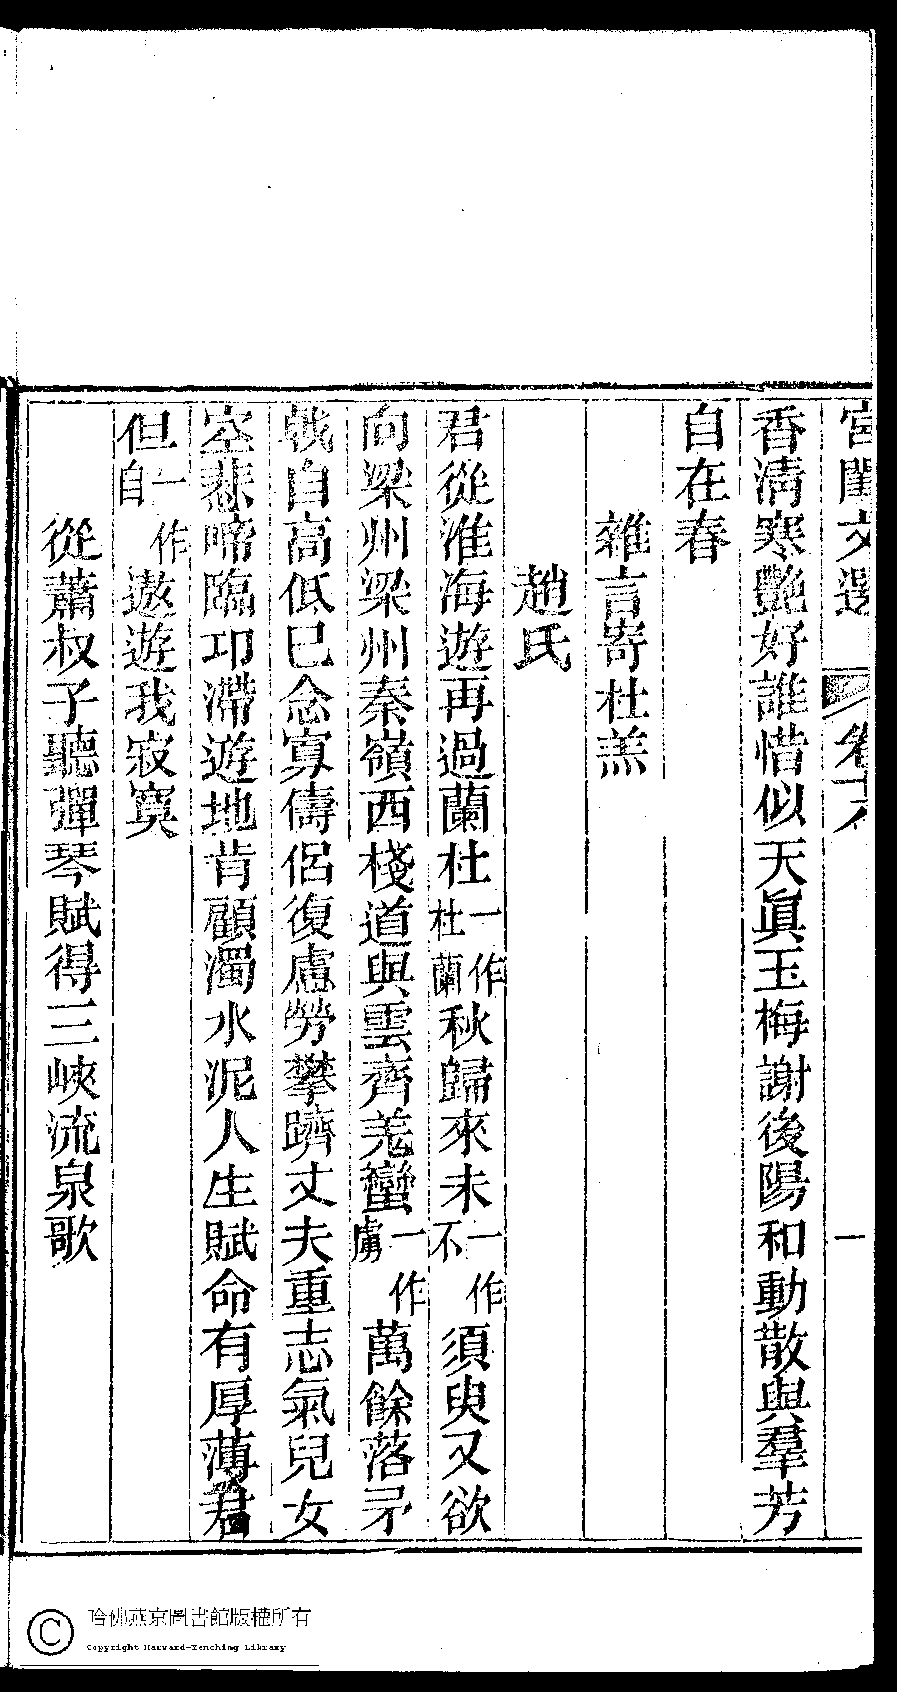 宮閨文選 卷十八 一
香清寒艷好誰惜似天眞玉梅謝後陽和動散與羣芳
自在春
雜言寄杜羔
趙氏
君從淮海遊再過蘭杜一作杜蘭秋歸來未一作不須臾又欲
向梁州梁州秦嶺西棧道與雲齊羌蠻一作虜萬餘落矛
戟自高低已念寡儔侶復慮勞攀躋丈夫重志氣兒女
空悲啼臨卭滯遊地肯顧濁水泥人生賦命有厚薄君
但一作自遨遊我寂寞
從蕭叔子聽彈琴賦得三峽流泉歌
哈佛燕京圖書館版權所有
Copyright Harvard-Yenching Library